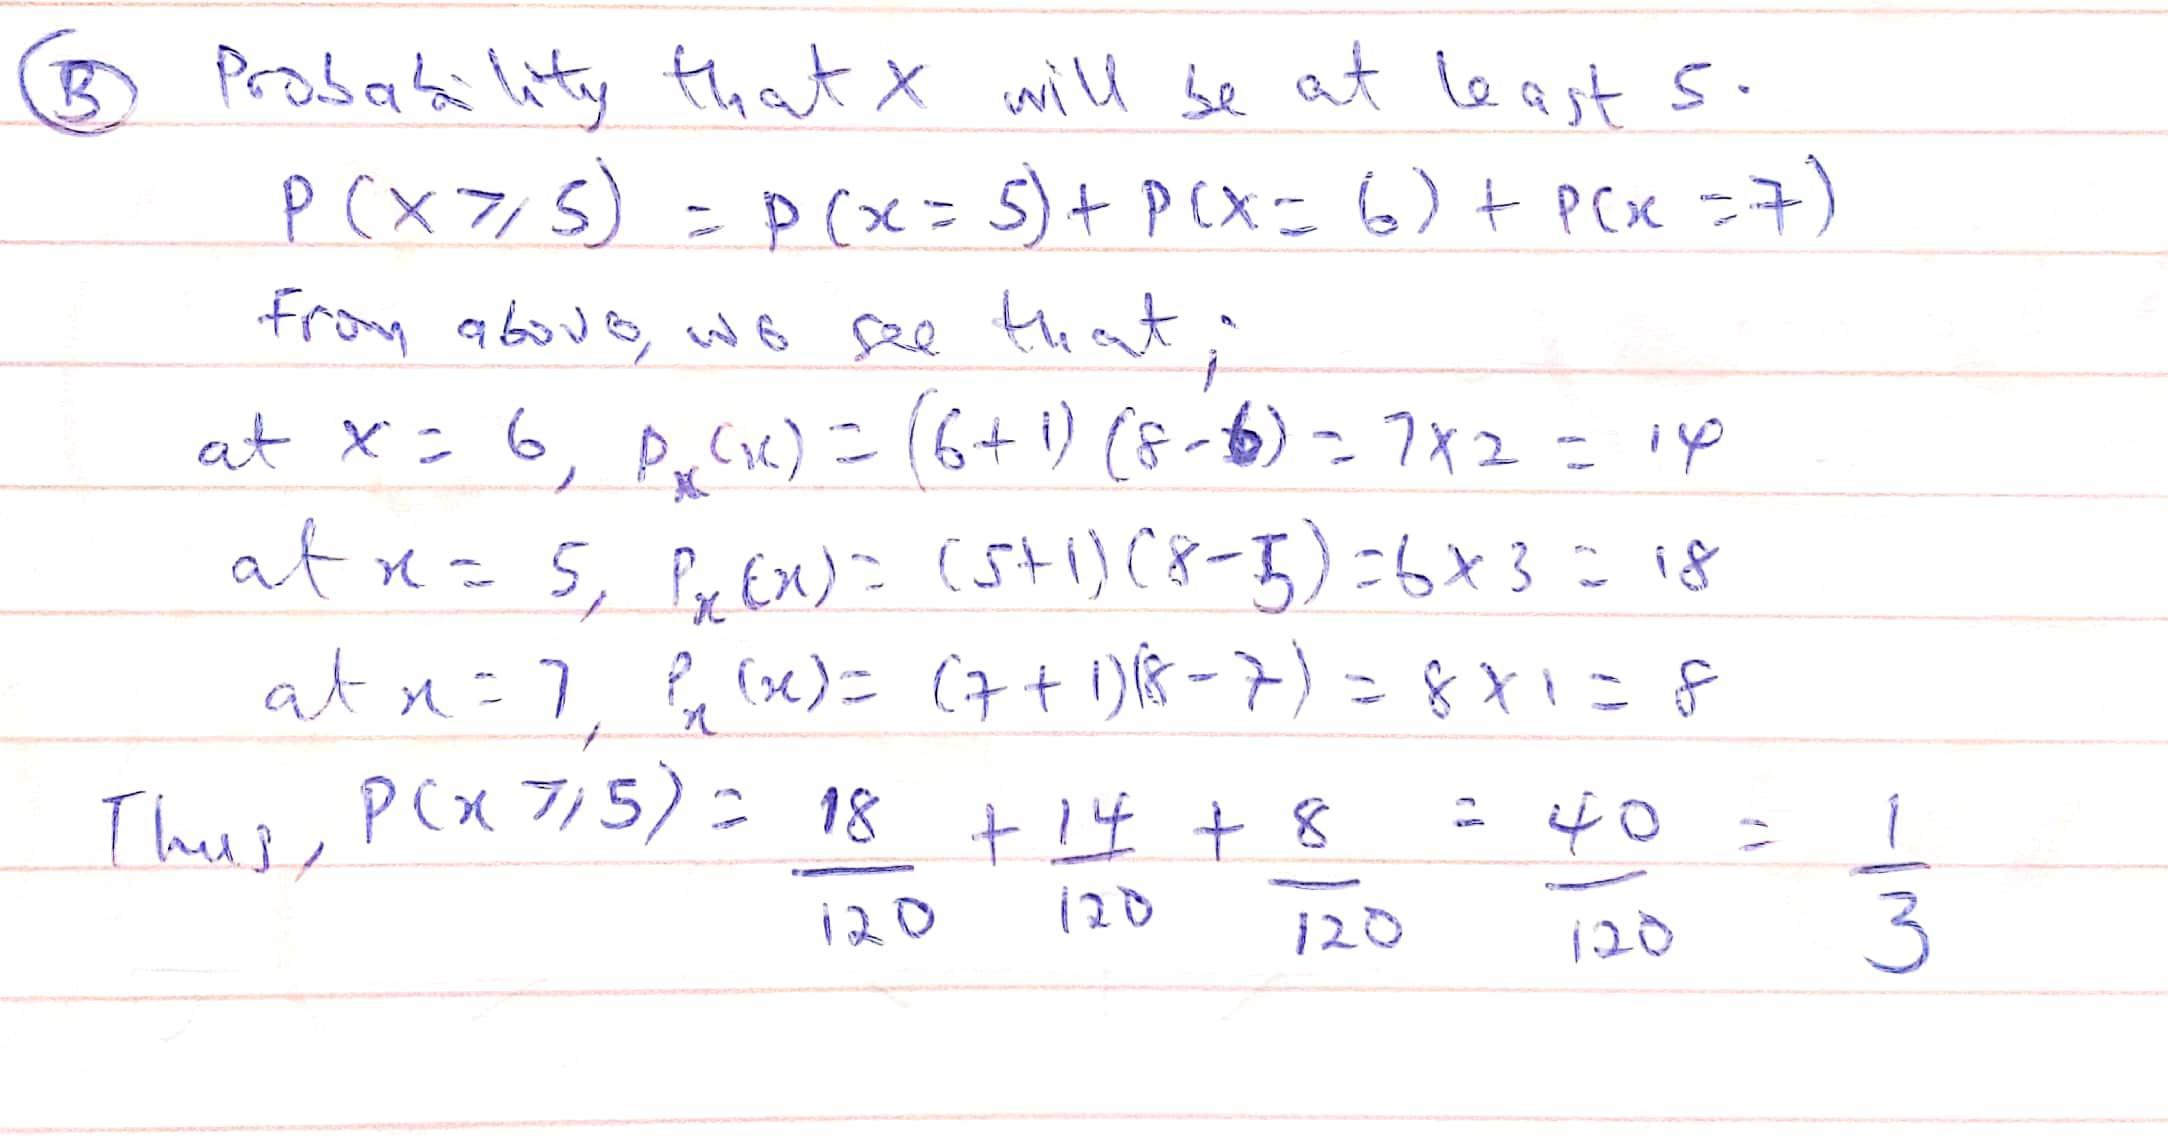 (B) Probability that X will be at least 5.
P(X ⩾ 5) = P(x = 5) + P(X = 6) + P(x = 7)
From above, we see that;
at x = 6, Pₓ(x) = (6+1)(8-6) = 7×2 = 14
at x = 5, Pₓ(x) = (5+1)(8-5) = 6×3 = 18
at x = 7, Pₓ(x) = (7+1)(8-7) = 8×1 = 8
Thus, P(x ⩾ 5) = 18/120 + 14/120 + 8/120 = 40/120 = 1/3